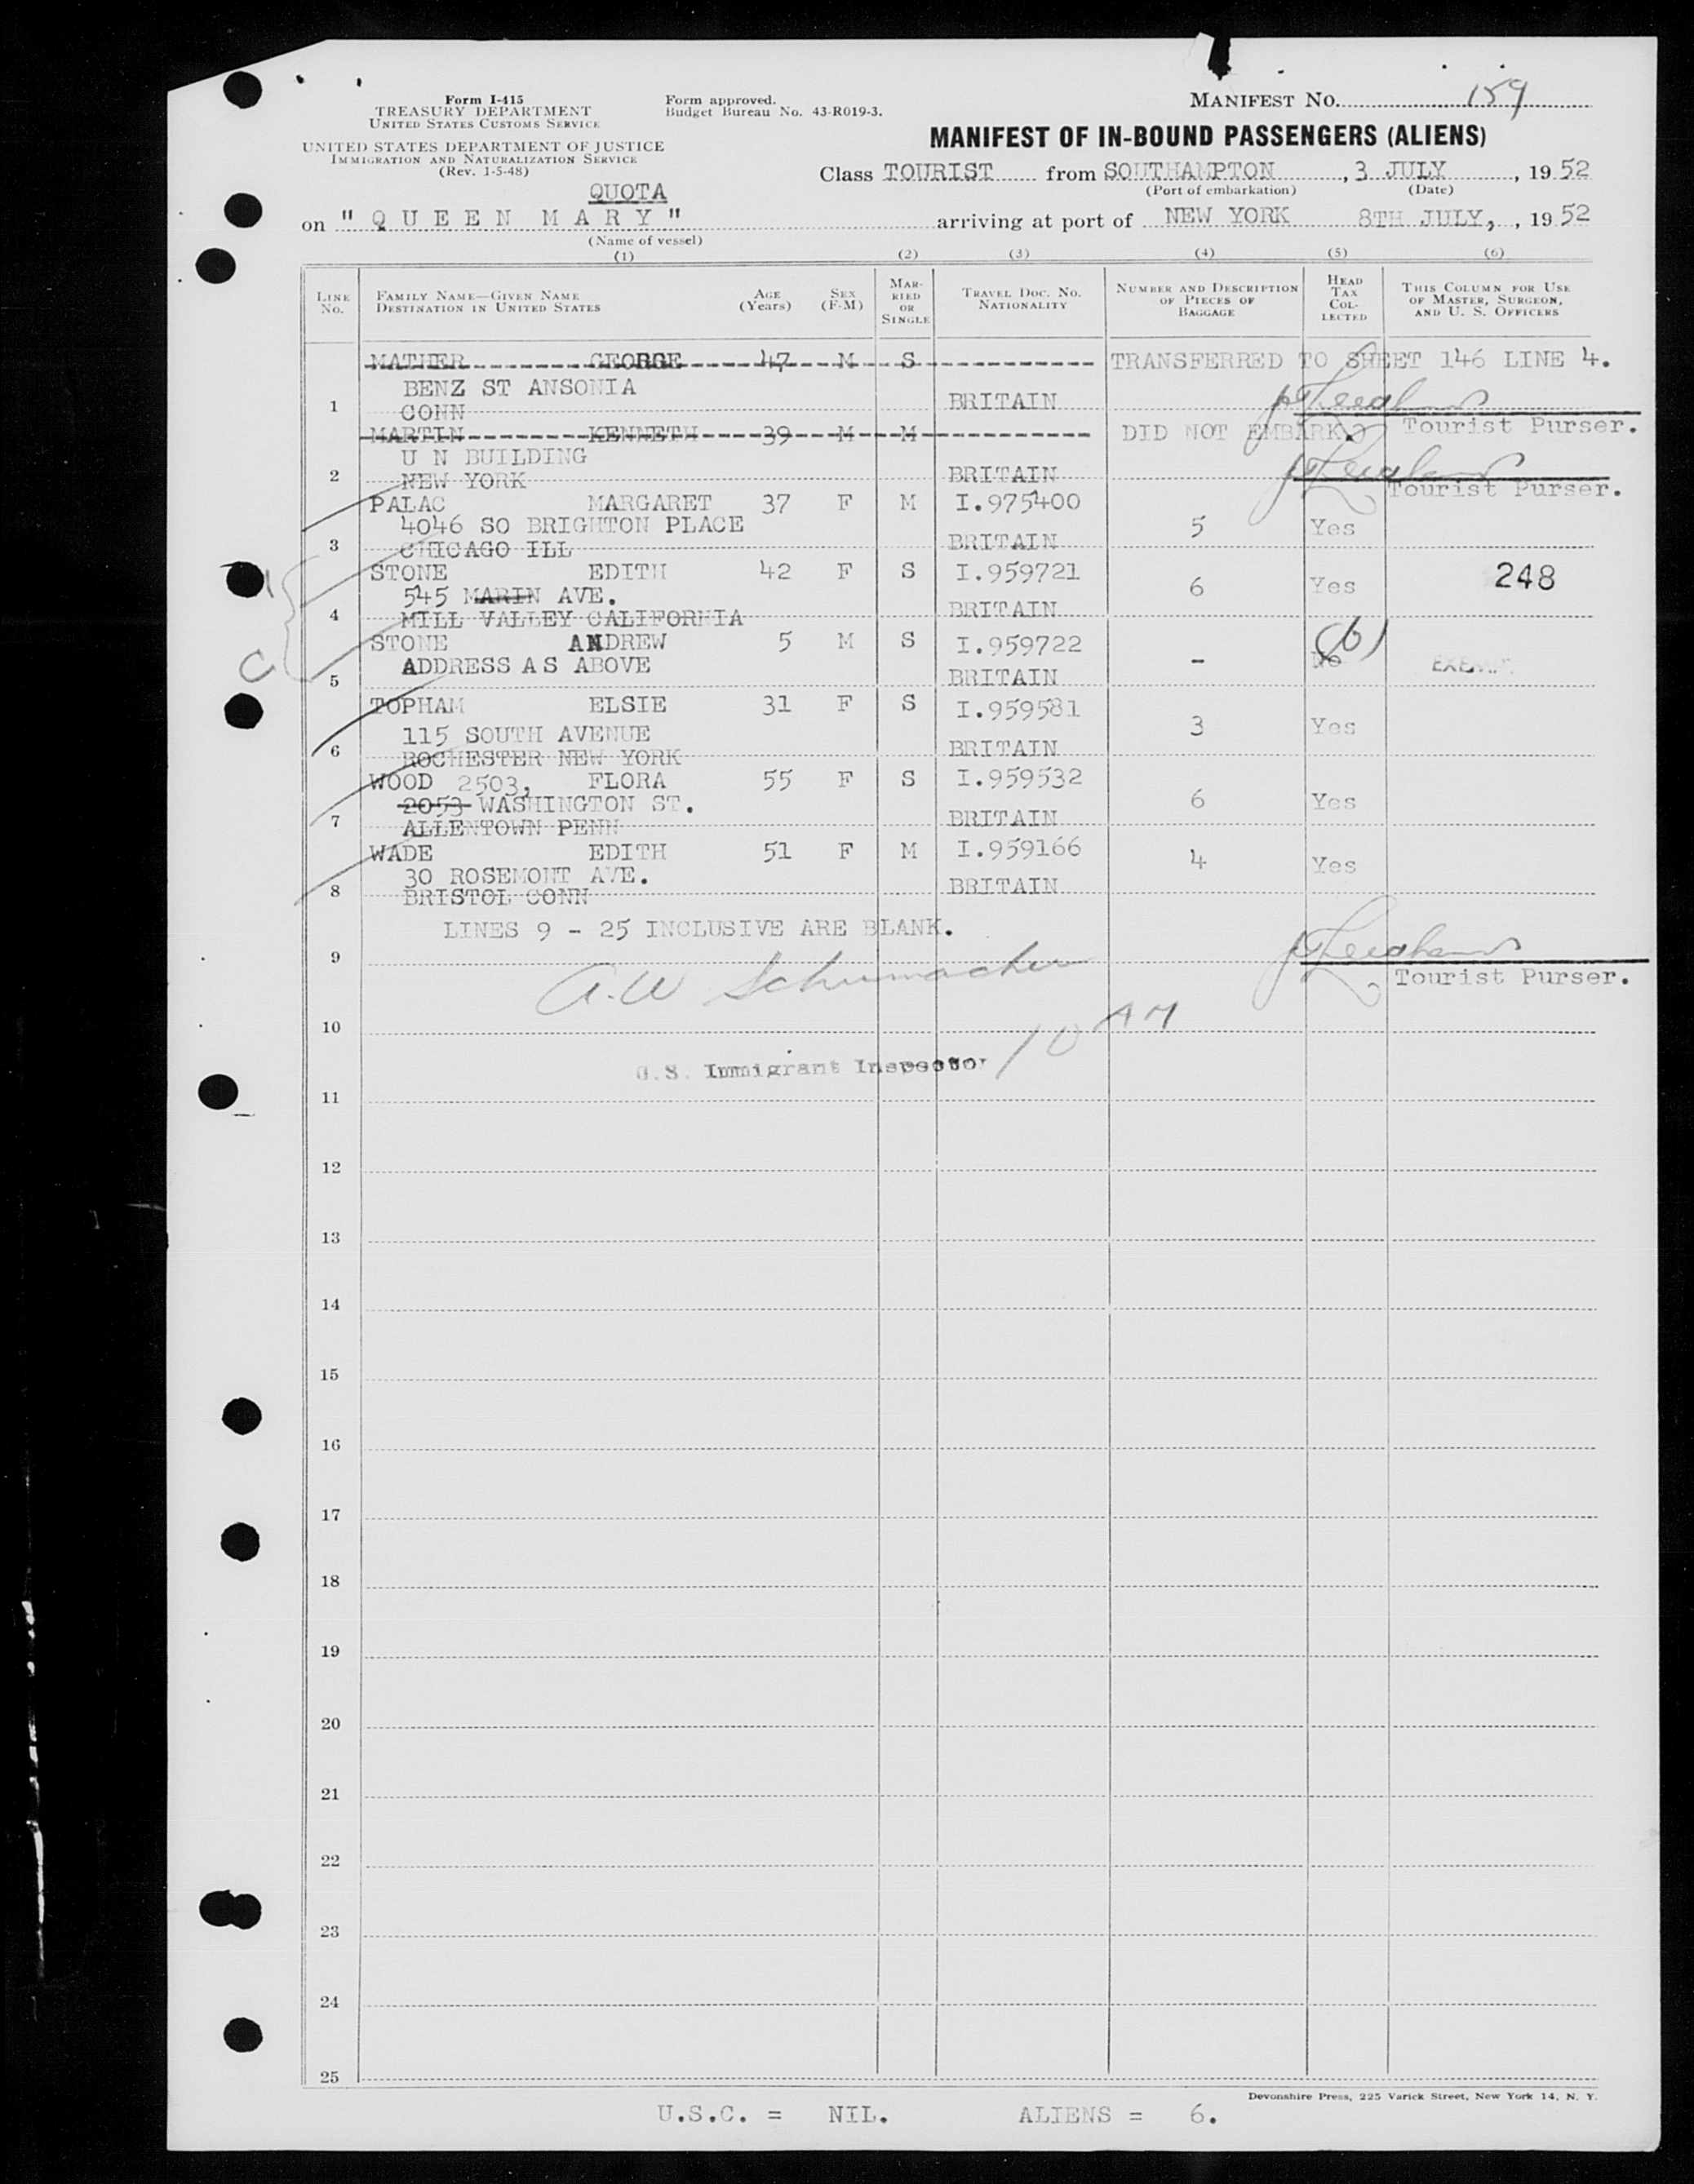 Form I-415
TREASURY DEPARTMENT
UNITED STATES CUSTOMS SERVICE
Form approved.
Budget Bureau No. 43-R019-3.
MANIFEST NO. 159
UNITED STATES DEPARTMENT OF JUSTICE
IMMIGRATION AND NATURALIZATION SERVICE
(Rev. 1-5-48)
MANIFEST OF IN-BOUND PASSENGERS (ALIENS)
Class TOURIST from SOUTHAMPTON, 3 JULY, 1952
(Port of embarkation) (Date)
QUOTA
on "QUEEN MARY" arriving at port of NEW YORK 8TH JULY, , 1952
(Name of vessel)
(1) (2) (3) (4) (5) (6)
LINE NO. FAMILY NAME—GIVEN NAME DESTINATION IN UNITED STATES AGE (Years) SEX (F-M) MARRIED OR SINGLE TRAVEL DOC. NO. NATIONALITY NUMBER AND DESCRIPTION OF PIECES OF BAGGAGE HEAD TAX COLLECTED THIS COLUMN FOR USE OF MASTER, SURGEON, AND U. S. OFFICERS
MATHER GEORGE 47 M S TRANSFERRED TO SHEET 146 LINE 4.
BENZ ST ANSONIA
1 CONN BRITAIN
Tourist Purser.
MARTIN KENNETH 39 M M DID NOT EMBARK
U N BUILDING
2 NEW YORK BRITAIN
Tourist Purser.
PALAC MARGARET 37 F M I.975400
4046 SO BRIGHTON PLACE 5 Yes
3 CHICAGO ILL BRITAIN
STONE EDITH 42 F S I.959721
545 MARIN AVE. 6 Yes 248
4 MILL VALLEY CALIFORNIA BRITAIN
STONE ANDREW 5 M S I.959722
ADDRESS AS ABOVE - No (b) EXEMPT
5 BRITAIN
TOPHAM ELSIE 31 F S I.959581
115 SOUTH AVENUE 3 Yes
6 ROCHESTER NEW YORK BRITAIN
WOOD 2503, FLORA 55 F S I.959532
2053 WASHINGTON ST. 6 Yes
7 ALLENTOWN PENN BRITAIN
WADE EDITH 51 F M I.959166
30 ROSEMONT AVE. 4 Yes
8 BRISTOL CONN BRITAIN
LINES 9 - 25 INCLUSIVE ARE BLANK.
9
A.W Schumacher
Tourist Purser.
10
10 AM
U.S. Immigrant Inspector
11
12
13
14
15
16
17
18
19
20
21
22
23
24
25
Devonshire Press, 225 Varick Street, New York 14, N. Y.
U.S.C. = NIL. ALIENS = 6.